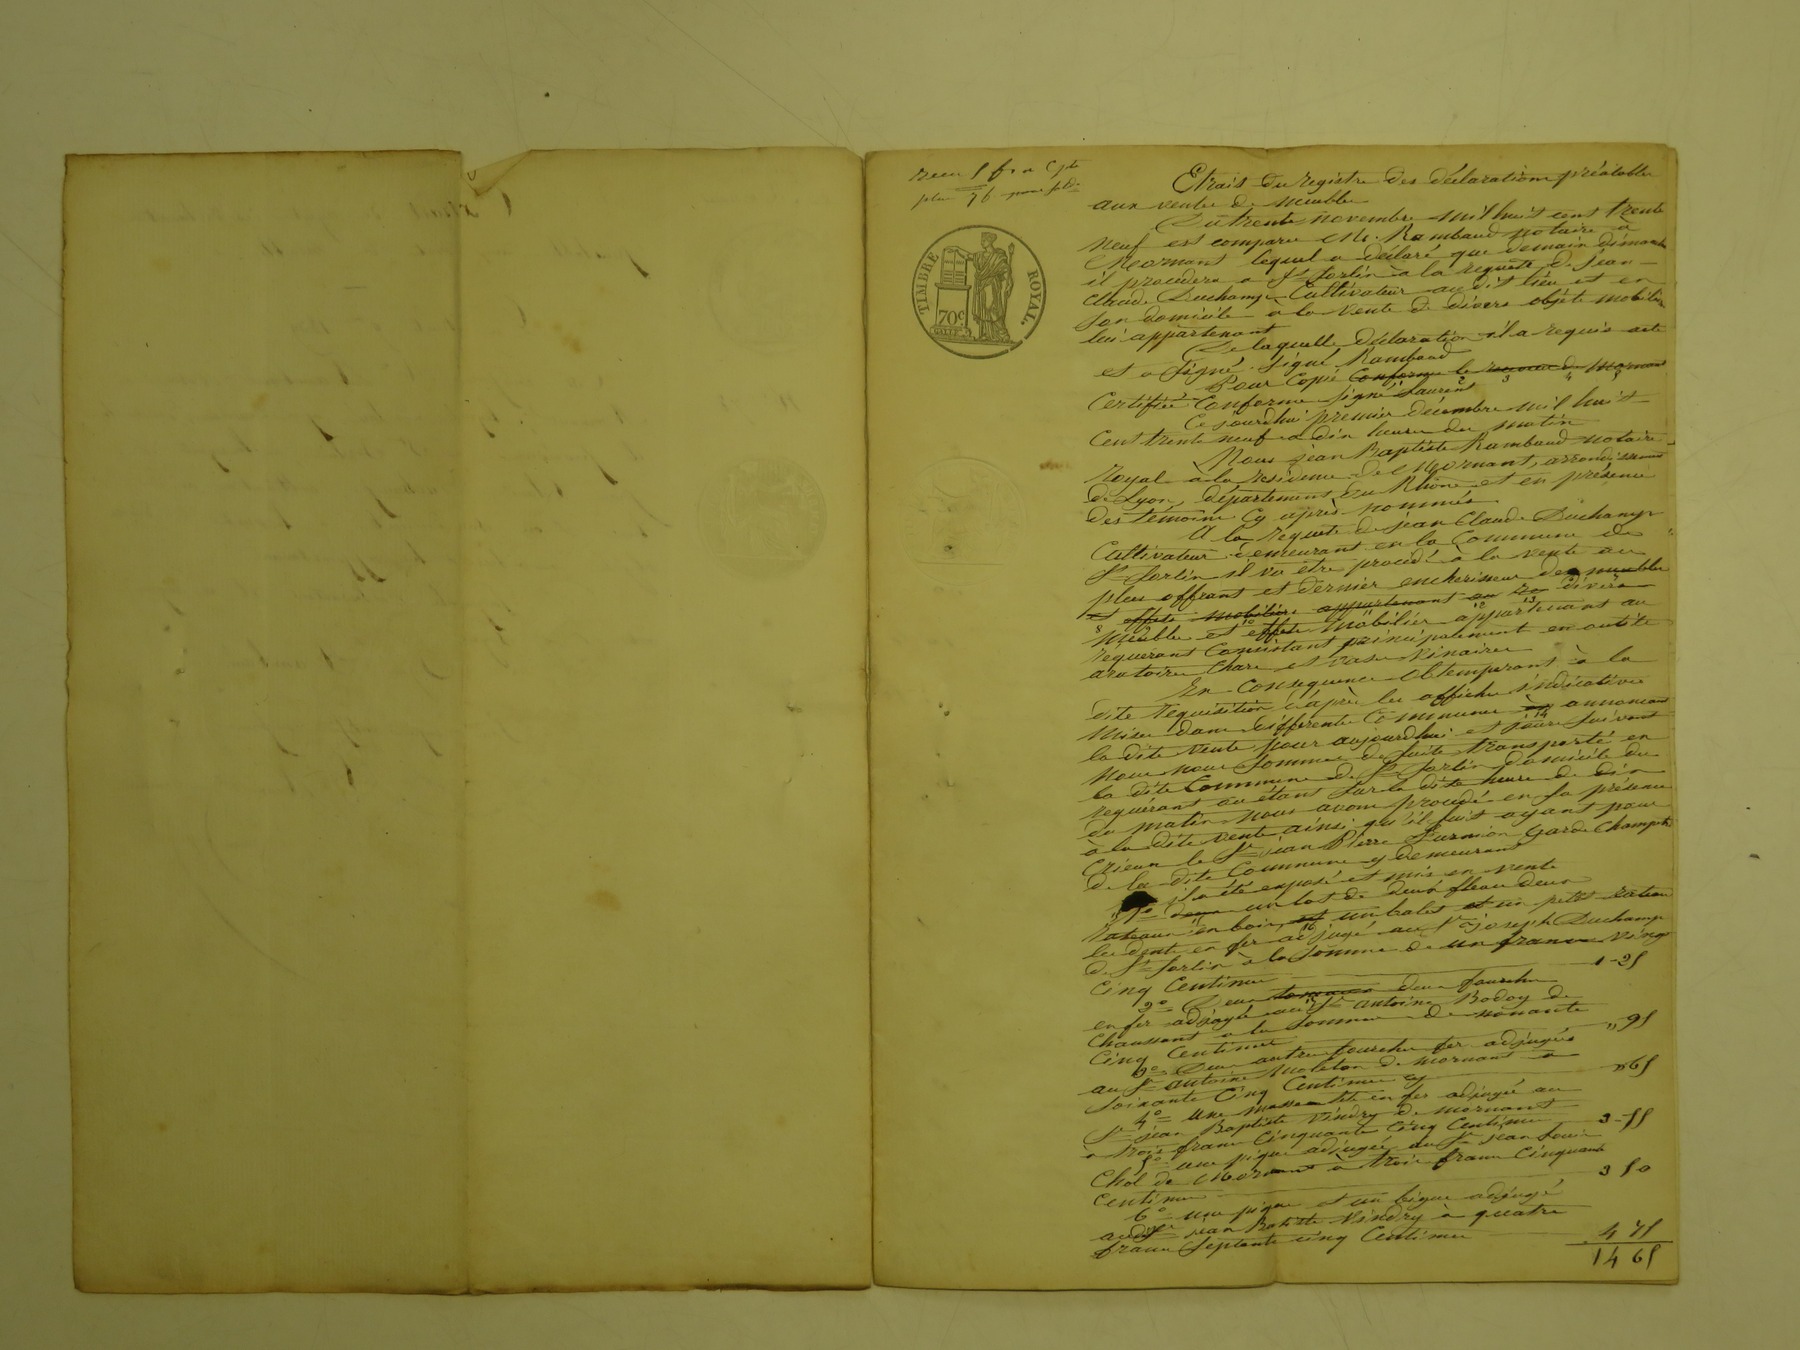 TIMBRE ROYAL.
70c
Etrait du registre des déclarations préalable
aux vente de meuble
Du trente novembre mil huit cent trente
neuf est comparu Me. Rambaud notaire à
Mornant lequel a déclaré que demain dimanche
il procedera a St Sorlin à la requete de jean-
Claude Duchamp Cultivateur au dit lieu et en
son domicile a la vente de divers objets mobilier
lui appartenant
De laquelle déclaration il a requis acte
et a signé. Signé Rambaud
Pour Copie Conforme le receveur de Mornant
Certifiée Conforme signé Laurent
Ce jourdhui premier décembre mil huit
Cent trente neuf a dix heure du matin
Nous jean Baptiste Rambaud notaire
Royal a la résidence de Mornant, arrondissement
de Lyon, département du Rhône et en présence
des témoins Cy après nommés
A la requete de jean Claude Duchamp
Cultivateur demeurant en la Commune de
St Sorlin il va être procédé à la vente au
plus offrant et dernier encherisseur des meuble
et effets mobiliers appartenant au divers
meuble et effets mobilier appartenant au
requerant Consistant principalement en outils
aratoire Chars et vases vinaires
En Consequence obtemperant à la
dite requisition d'après les affiches indicative
mises dans différente Commune annoncant
la dite vente pour aujourdhui et jours suivant
nous nous sommes de suite transporté en
la dite Commune de St Sorlin domicile du
requérant ou étant sur la dite heure de dix
du matin nous avons procédé en sa présence
à la dite vente ainsi qu'il suit ayant pour
Crieur le Sr jean Pierre Furnion Garde Champetre
de la dite Commune y demeurant
il a été exposé et mis en vente
1o un lot de deux fleau deux
rateaux en bois, et un balet et un petit rateau
les dents en fer adjugé au Sr joseph Duchamp
de St Sorlin à la somme de un franc vingt
Cinq Centimes 1-25
2o Deux deux fourche
en fer adjugé au Sr antoine Bodoy de
Chaussant a la somme de nonante
Cinq Centimes " 95
3o Deux autre fourche fer adjugés
au Sr antoine Moleton de mornant a
soixante Cinq Centimes cy " 65
4o une masse en fer adjugée au
Sr jean Baptiste Vindry de mornant
à trois francs Cinquante Cinq Centimes 3-55
5o une pique adjugée au Sr jean Louis
Chol de Mornant à trois francs Cinquante
Centimes 3 50
6o une pique et un bigue adjugé
au Sr jean Batiste Vindry à quatre
francs Septante cinq Centimes 4 75
14 65